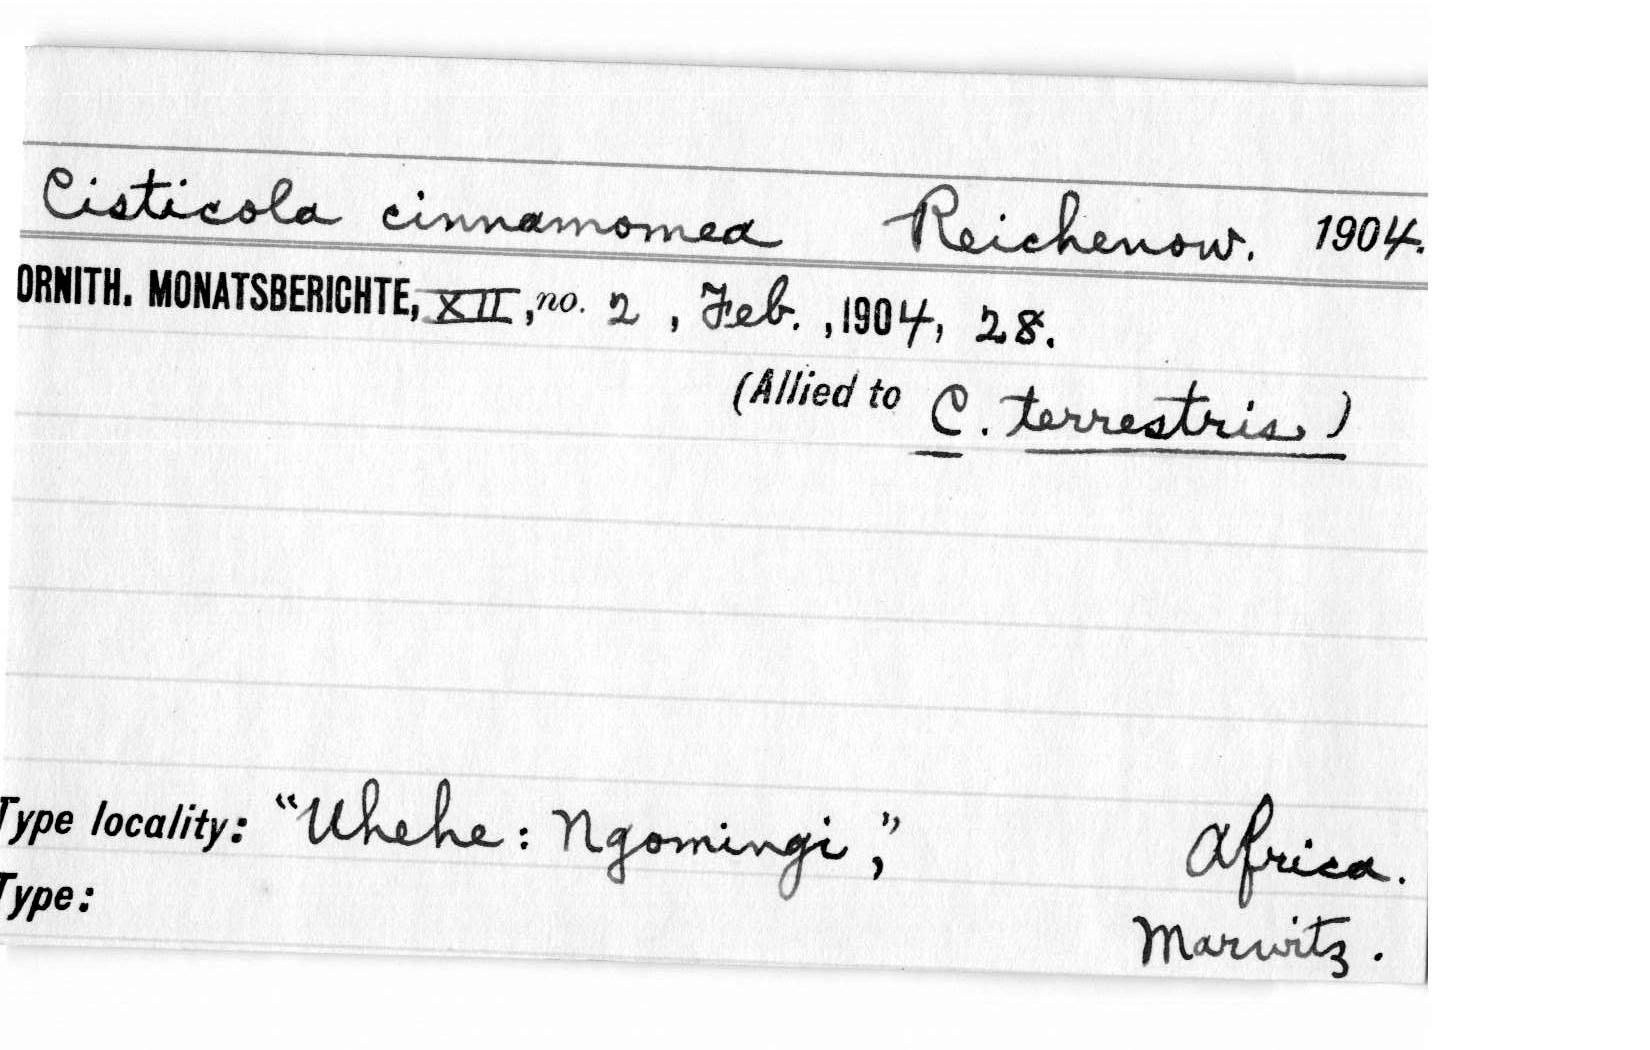 Cisticola cinnamomea Reichenow. 1904.
ORNITH. MONATSBERICHTE, XII, no. 2, Feb., 1904, 28.
(Allied to C. terrestris.)
Type locality: "Uhehe: Ngomingi," Africa.
Type: Marwitz.